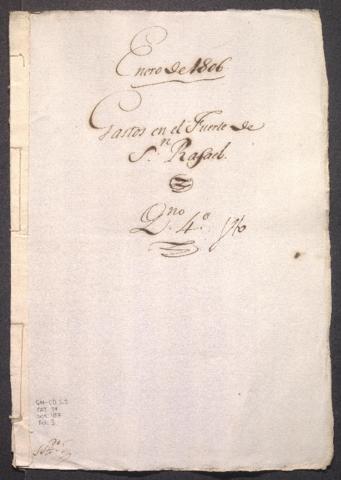 Enero de 1806
Gastos en el Fuerte de
S.n Rafael.
Q.no 4.o